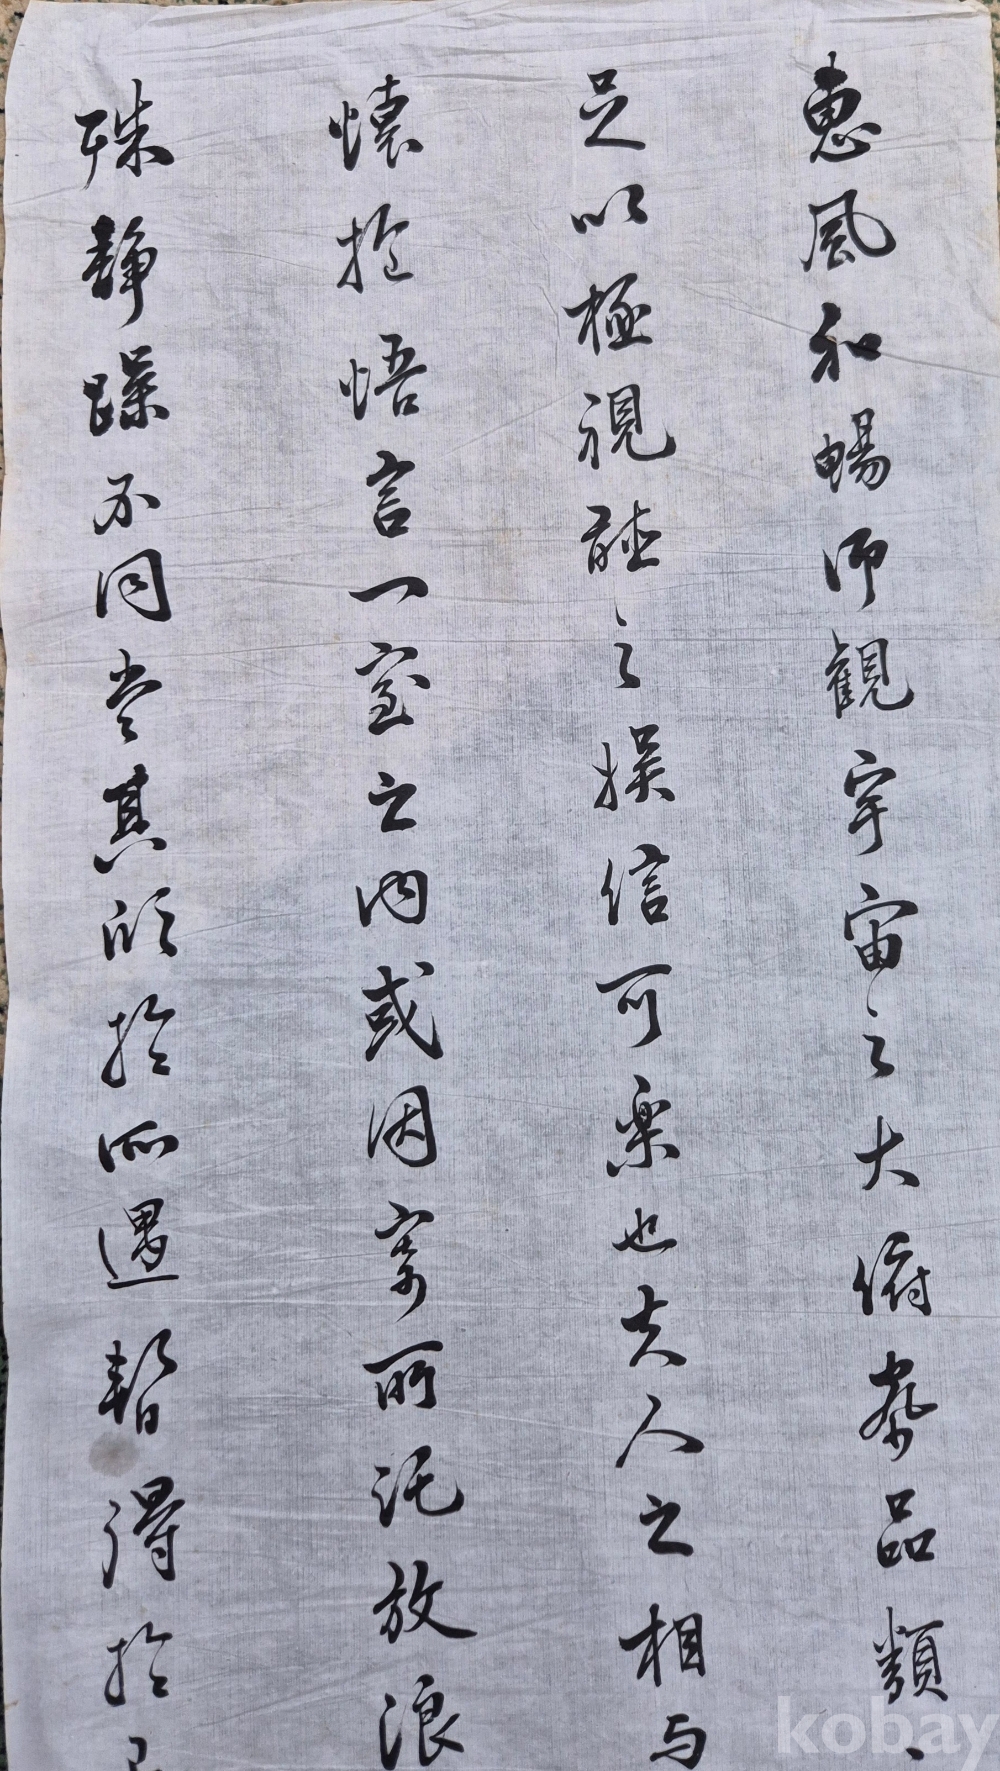 惠風和暢仰觀宇宙之大俯察品類
足以極視聽之娛信可樂也夫人之相与
懷抱悟言一室之内或因寄所託放浪
殊靜躁不同當其欣於所遇暫得於
kobay